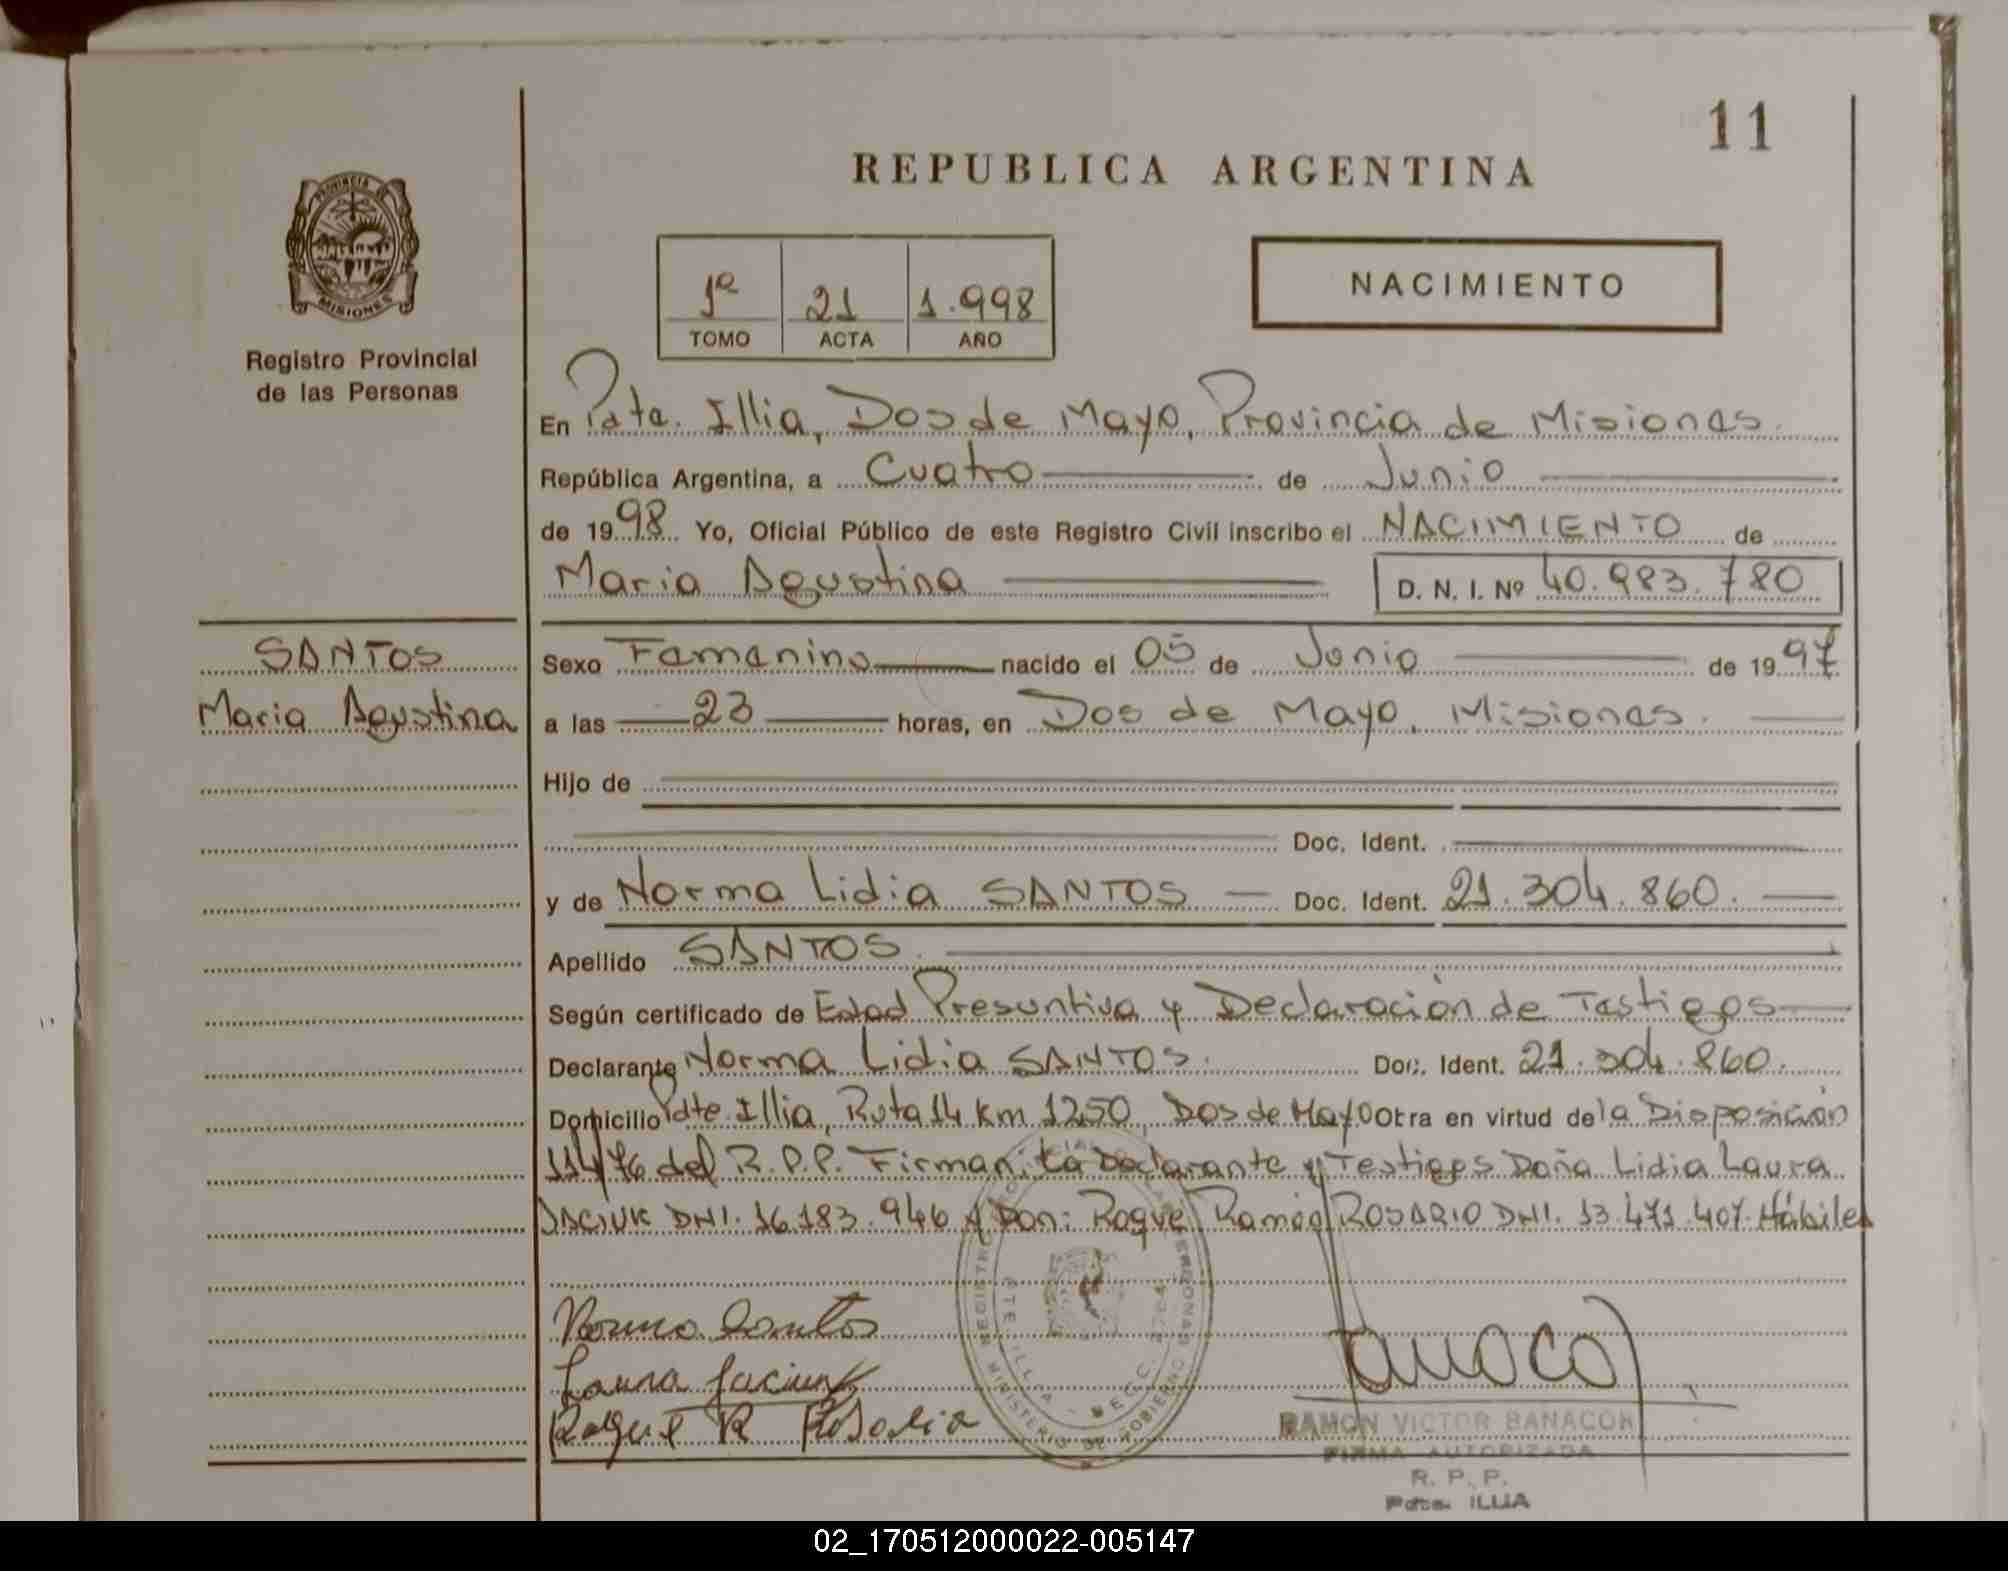 11
REPUBLICA ARGENTINA
PROVINCIA DE
MISIONES
Registro Provincial
de las Personas
1º 21 1.998
TOMO ACTA AÑO
NACIMIENTO
En Pdte. Illia, Dos de Mayo, Provincia de Misiones.
República Argentina, a Cuatro de Junio
de 1998 Yo, Oficial Público de este Registro Civil inscribo el NACIMIENTO de
Maria Agustina D. N. I. Nº 40.983.780
SANTOS
Maria Agustina
Sexo Femenino nacido el 05 de Junio de 1997
a las 23 horas, en Dos de Mayo, Misiones.
Hijo de
Doc. Ident.
y de Norma Lidia SANTOS Doc. Ident. 21.304.860.
Apellido SANTOS.
Según certificado de Edad Presuntiva y Declaración de Testigos
Declarante Norma Lidia SANTOS. Doc. Ident. 21.304.860.
Domicilio Pdte. Illia, Ruta 14 Km 1250, Dos de Mayo Otra en virtud de la Disposición
114/76 del R.P.P. Firman: La Declarante y Testigos Doña Lidia Laura
JACIUK DNI. 16.183.946 y Don: Roque Ramón ROSARIO DNI. 13.471.407. Hábiles
Norma Santos
Laura Jaciuk
Roque R
RAMON VICTOR BANACOR
FIRMA AUTORIZADA
R. P. P.
Pdte. ILLIA
02_170512000022-005147